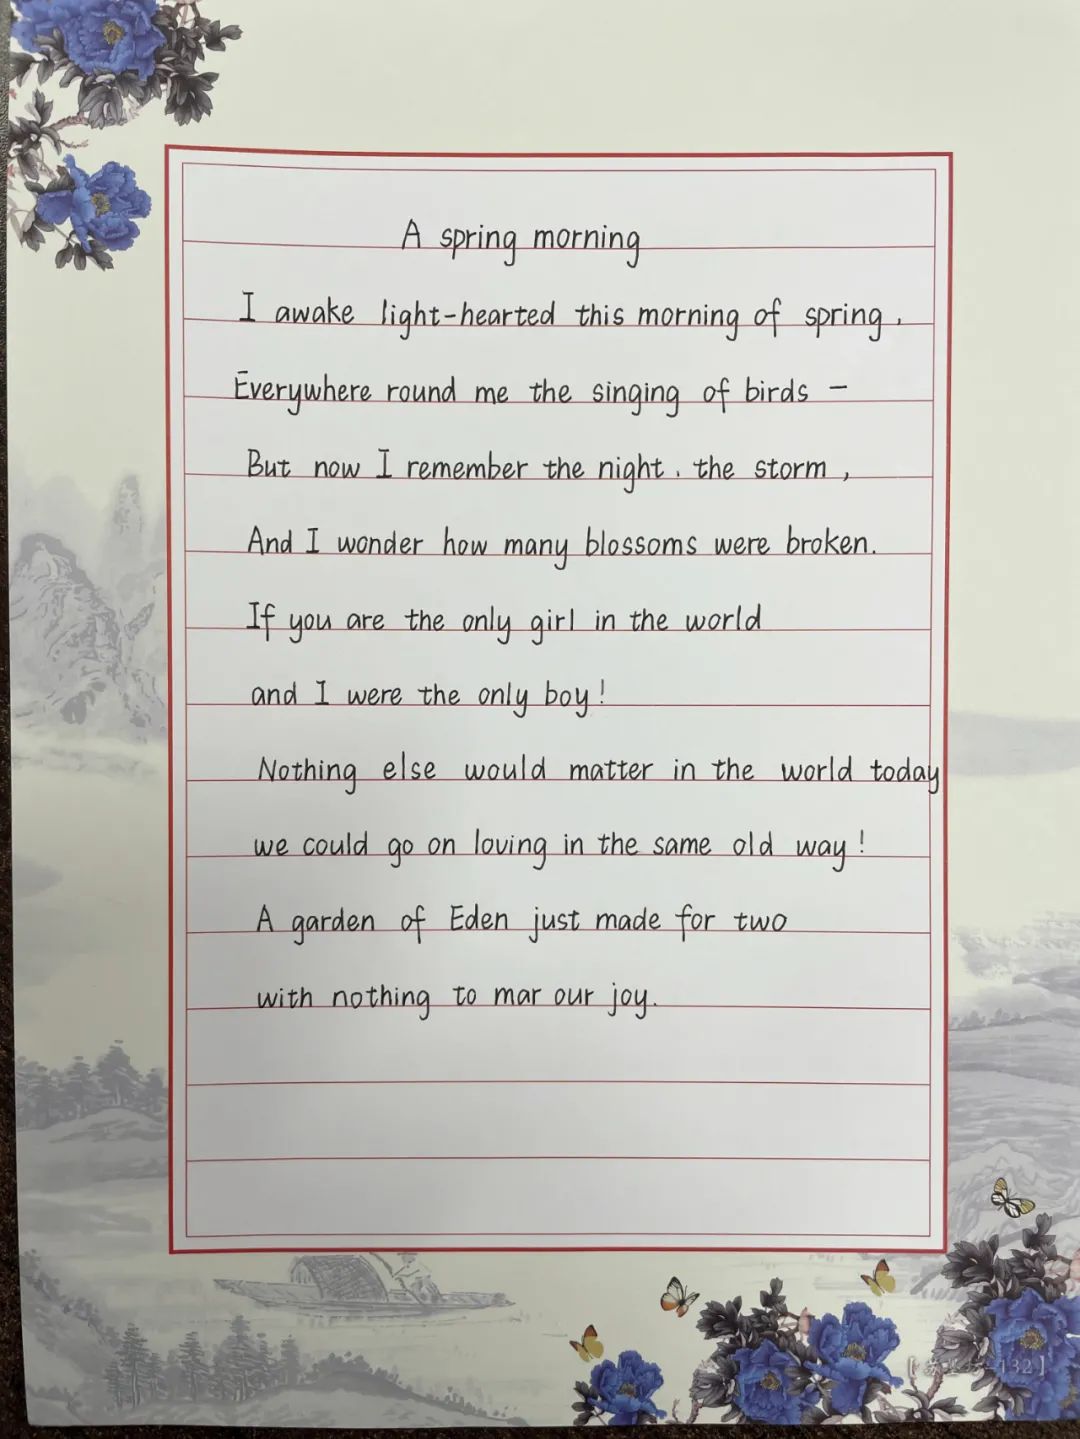 A spring morning
I awake light-hearted this morning of spring,
Everywhere round me the singing of birds —
But now I remember the night, the storm,
And I wonder how many blossoms were broken.
If you are the only girl in the world
and I were the only boy!
Nothing else would matter in the world today
we could go on loving in the same old way!
A garden of Eden just made for two
with nothing to mar our joy.
132】